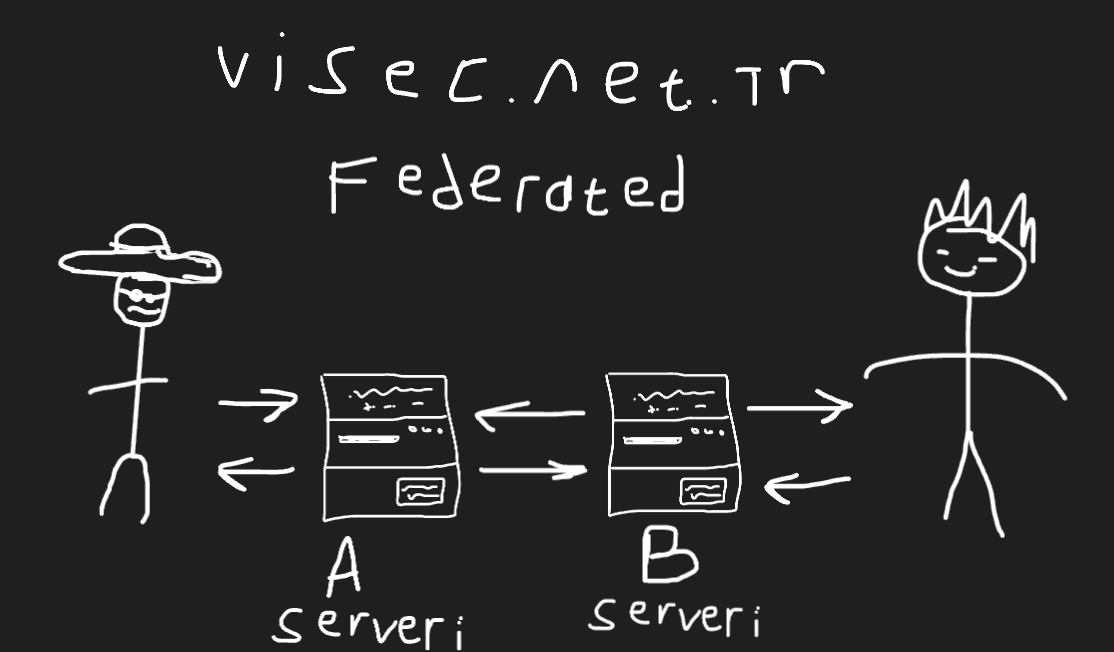 visec.net.Tr
Federated
A
serveri
B
serveri